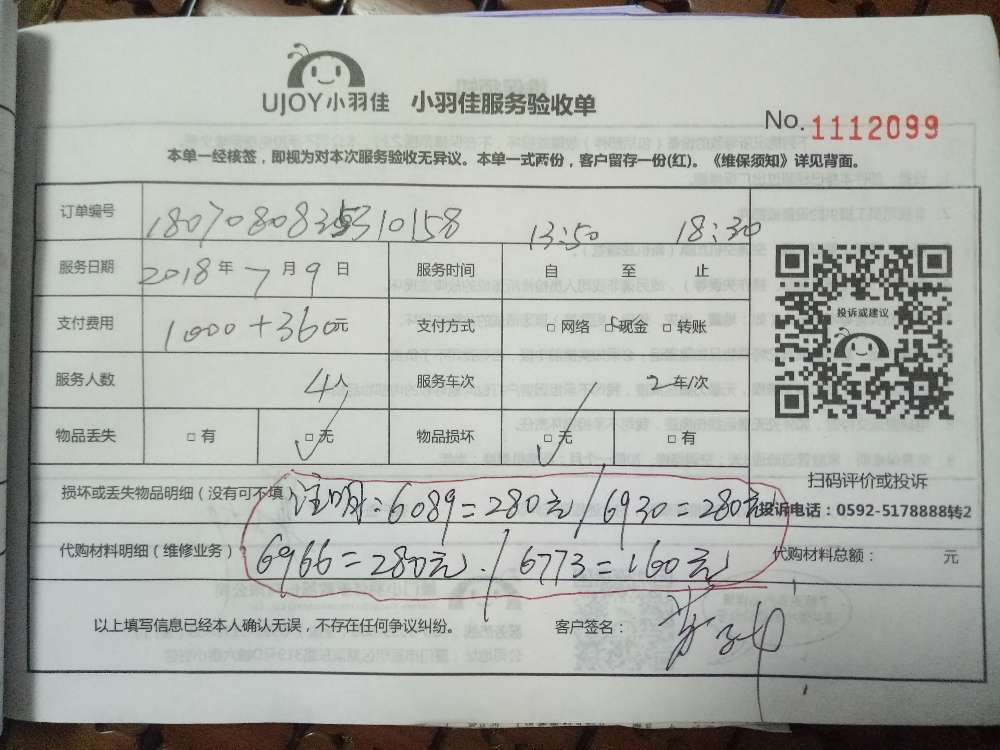 UJOY小羽佳 小羽佳服务验收单
No. 1112099
本单一经核签，即视为对本次服务验收无异议。本单一式两份，客户留存一份(红)。《维保须知》详见背面。
订单编号 13:50 18:30
服务日期 2018年7月9日 服务时间 自 至 止
投诉或建议
支付费用 1000+360元 支付方式 □ 网络 □ 现金 □ 转账
服务人数 4人 服务车次 2车/次
物品丢失 □ 有 □ 无 物品损坏 □ 无 □ 有
扫码评价或投诉
损坏或丢失物品明细（没有可不填） 注明:6089=280元/6930=280元
投诉电话：0592-5178888转2
代购材料明细（维修业务） 6966=280元./6773=160元 代购材料总额： 元
以上填写信息已经本人确认无误，不存在任何争议纠纷。 客户签名：